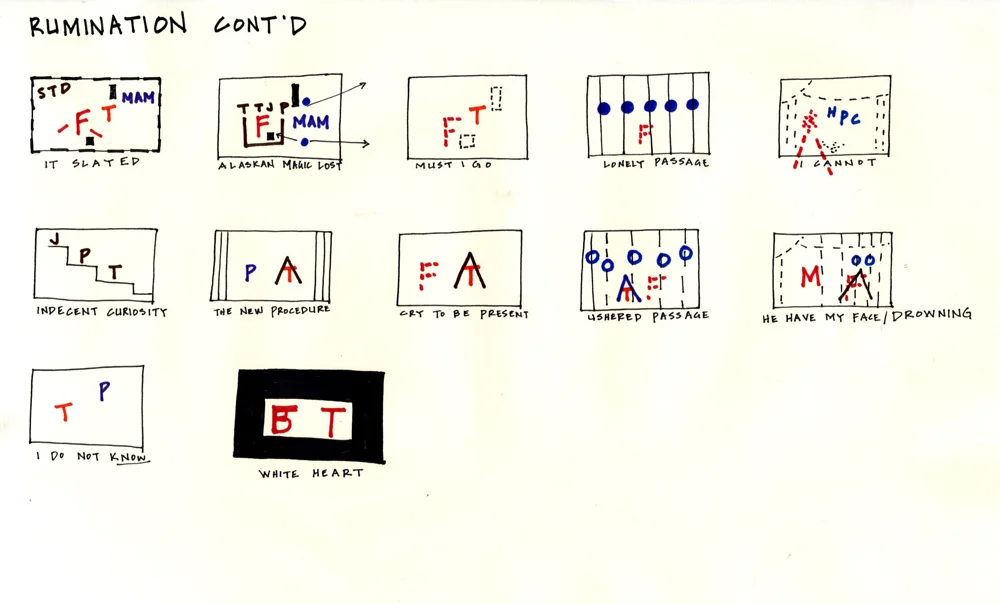 RUMINATION CONT'D
STD
MAM
F T
IT SLAYED
T T J P
F
MAM
ALASKAN MAGIC LOST
F T
MUST I GO
F
LONELY PASSAGE
HPC
I CANNOT
J
P
T
INDECENT CURIOSITY
P T
THE NEW PROCEDURE
F T
CRY TO BE PRESENT
T F
USHERED PASSAGE
M F
HE HAVE MY FACE/DROWNING
T P
I DO NOT KNOW
T
WHITE HEART